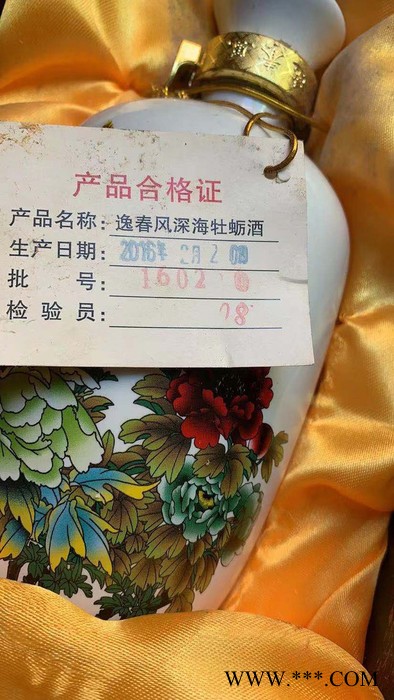 产品合格证
产品名称：逸春风深海牡蛎酒
生产日期：2016年 2月2
批 号：1602
检验员：78
WWW.***.COM